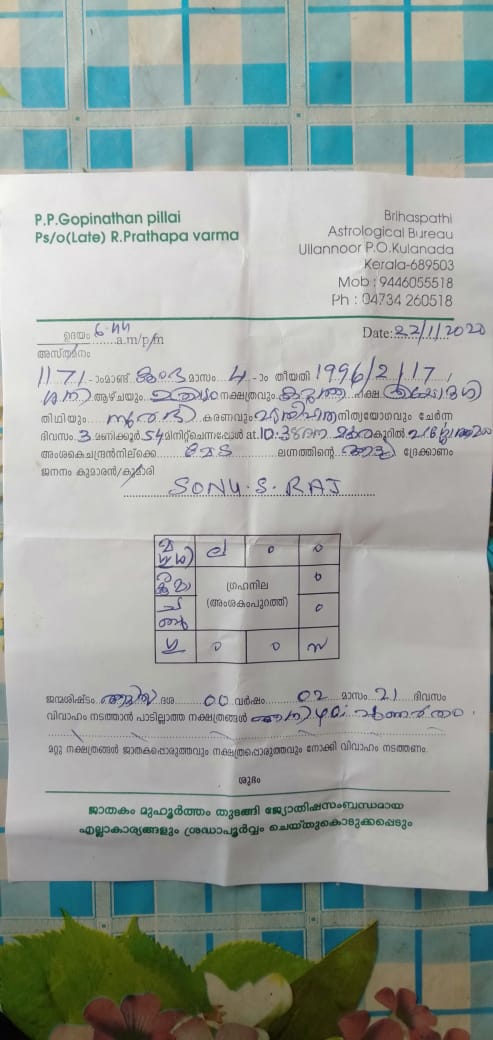 P.P.Gopinathan pillai
Ps/o(Late) R.Prathapa varma
Brihaspathi
Astrological Bureau
Ullannoor P.O.Kulanada
Kerala-689503
Mob : 9446055518
Ph : 04734 260518
ഉദയം 6.44 a.m/p/m
Date: 22/1/2020
അസ്തമനം
1171-ാംമാണ്ട് കുംഭ മാസം 4-ാം തീയതി 1996/2/17
ശനി ആഴ്ചയും നക്ഷത്രവും പക്ഷ
തിഥിയും സുരഭി കരണവും നിത്യയോഗവും ചേർന്ന
ദിവസം 3 മണിക്കൂർ 54 മിനിറ്റ്ചെന്നപ്പോൾ at. 10.38 മകര കൂറിൽ
അംശകെചന്ദ്രൻനില്ക്കെ മേട ലഗ്നത്തിന്റെ ദ്രേക്കാണം
ജനനം കുമാരൻ/കുമാരി
SONU.S.RAJ
ല ഠ ഠ
ഗ്രഹനില
(അംശകംപുറത്ത്)
ഠ
ഠ
ഠ ഠ
ജന്മശിഷ്ടം ദശ 00 വർഷം 02 മാസം 21 ദിവസം
വിവാഹം നടത്താൻ പാടില്ലാത്ത നക്ഷത്രങ്ങൾ
മറ്റു നക്ഷത്രങ്ങൾ ജാതകപൊരുത്തവും നക്ഷത്രപ്പൊരുത്തവും നോക്കി വിവാഹം നടത്തണം.
ശുഭം
ജാതകം മുഹൂർത്തം തുടങ്ങി ജ്യോതിഷസംബന്ധമായ
എല്ലാകാര്യങ്ങളും ശ്രദ്ധാപൂർവ്വം ചെയ്തുകൊടുക്കപ്പെടും